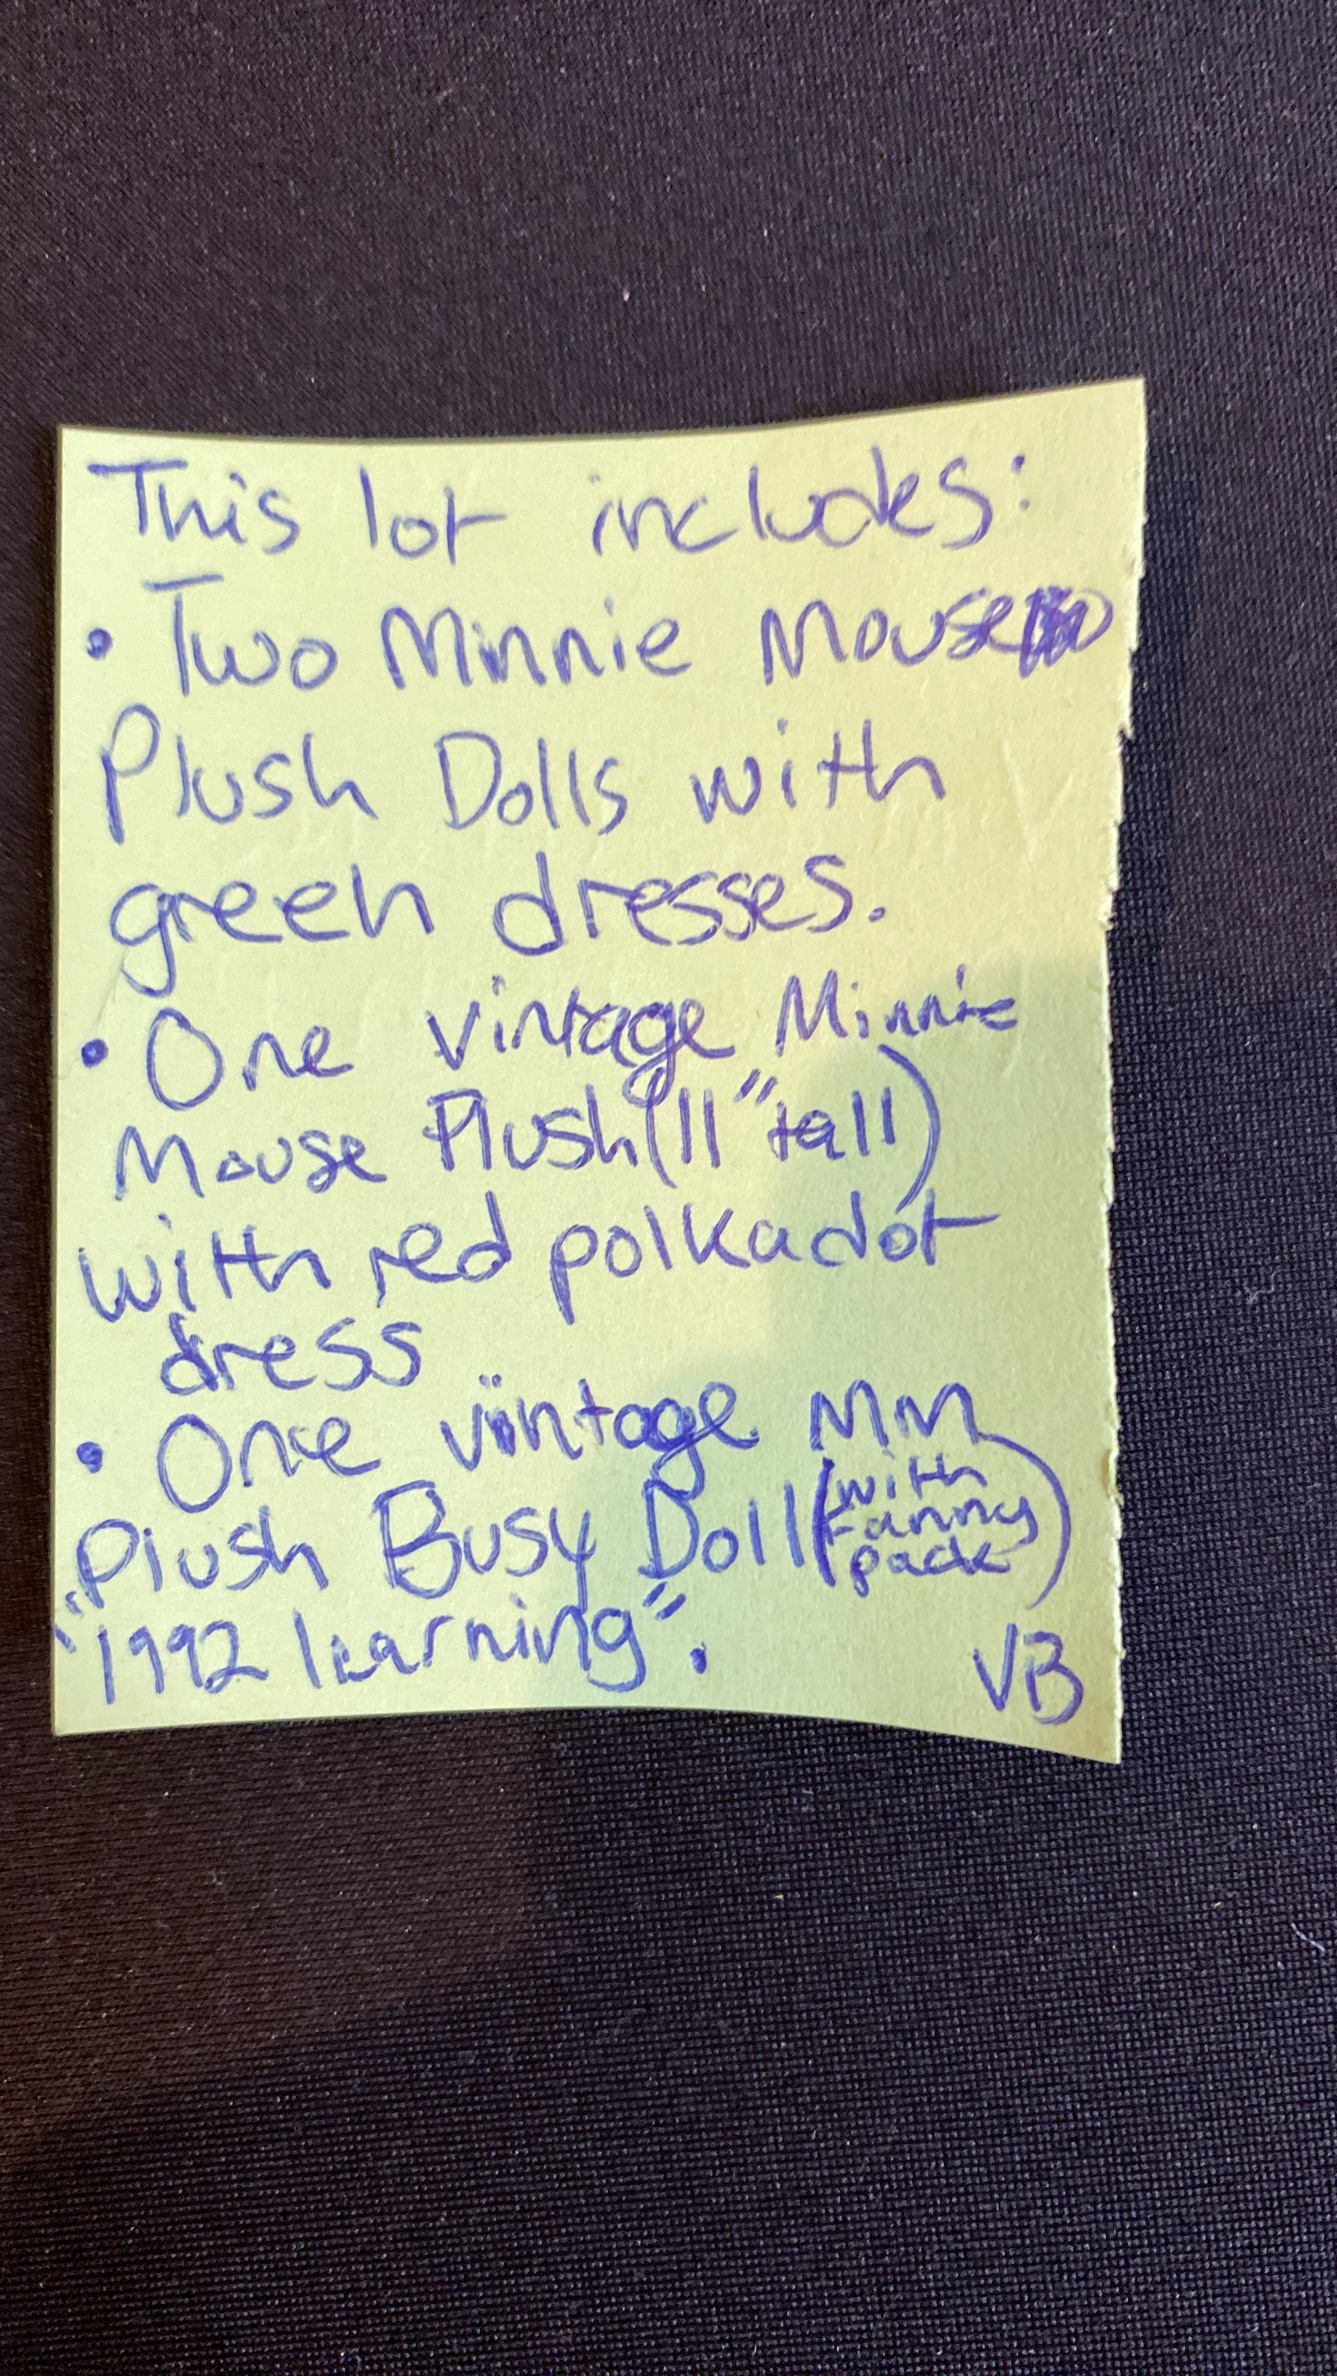 This lot includes:
• Two Minnie Mouse
Plush Dolls with
green dresses.
• One vintage Minnie
Mouse Plush (11" tall)
with red polkadot
dress
• One vintage MM
Plush Busy Doll (with fanny pack)
"1992 learning".
VB